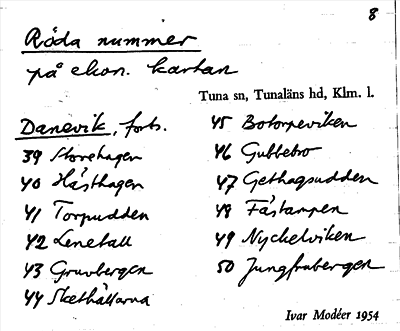 8
Röda nummer
på ekon. kartan
Tuna sn, Tunaläns hd, Klm. l.
Danevik, forts.
39 Storehagen
40 Hästhagen
41 Torpudden
42 Lenetall
43 Gruvbergen
44 Skethällarna
45 Botorpeviken
46 Gubbebo
47 Gethagsudden
48 Fåstarpen
49 Nyckelviken
50 Jungfrubergen
Ivar Modéer 1954